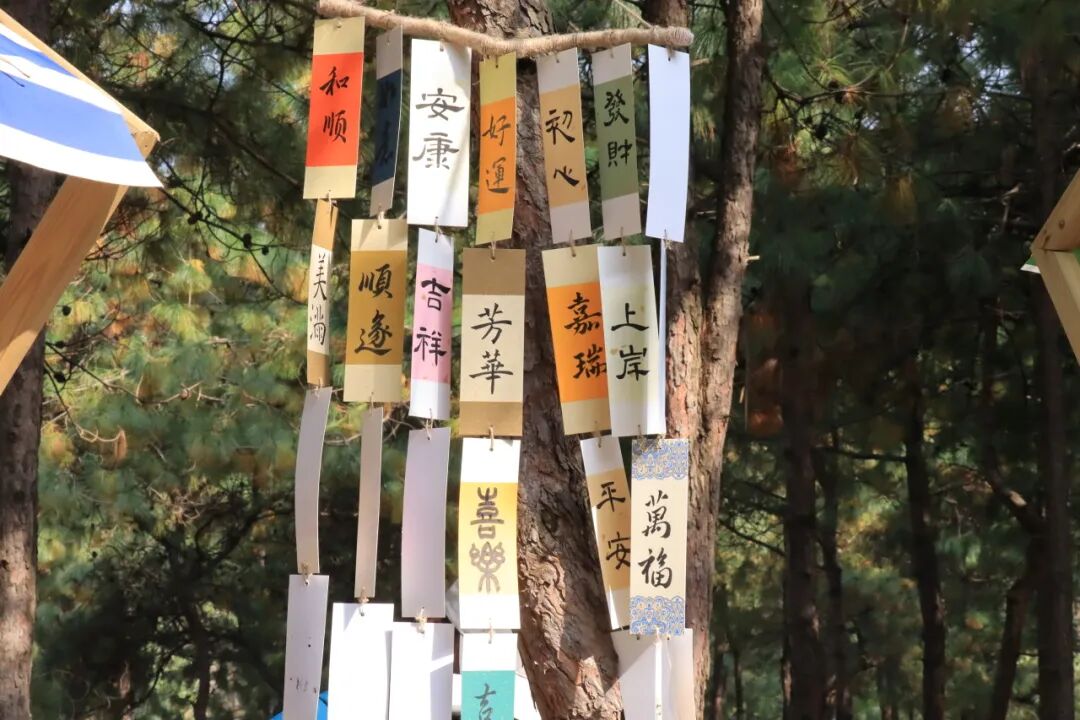 和順
安康
好運
初心
發財
美滿
順遂
吉祥
芳華
嘉瑞
上岸
喜樂
平安
萬福
吉